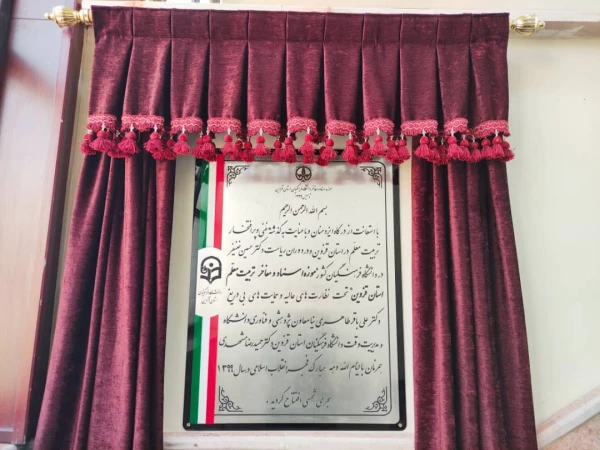 بسم الله الرحمن الرحیم
با استعانت از درگاه ایزد منان و با عنایت به گذشته غنی و پر افتخار
تربیت معلم در استان قزوین و در دوران ریاست دکتر حسین خنیفر
در دانشگاه فرهنگیان کشور موزه اسناد و مفاخر تربیت معلم
استان قزوین تحت نظارت های عالیه و حمایت های بی دریغ
دکتر علی باقر طاهری نیا معاون پژوهشی و فناوری دانشگاه
و مدیریت وقت دانشگاه فرهنگیان استان قزوین دکتر حمیدرضا مشهدی
همزمان با ایام الله دهه مبارک فجر انقلاب اسلامی در سال ۱۳۹۹
هجری شمسی افتتاح گردید.